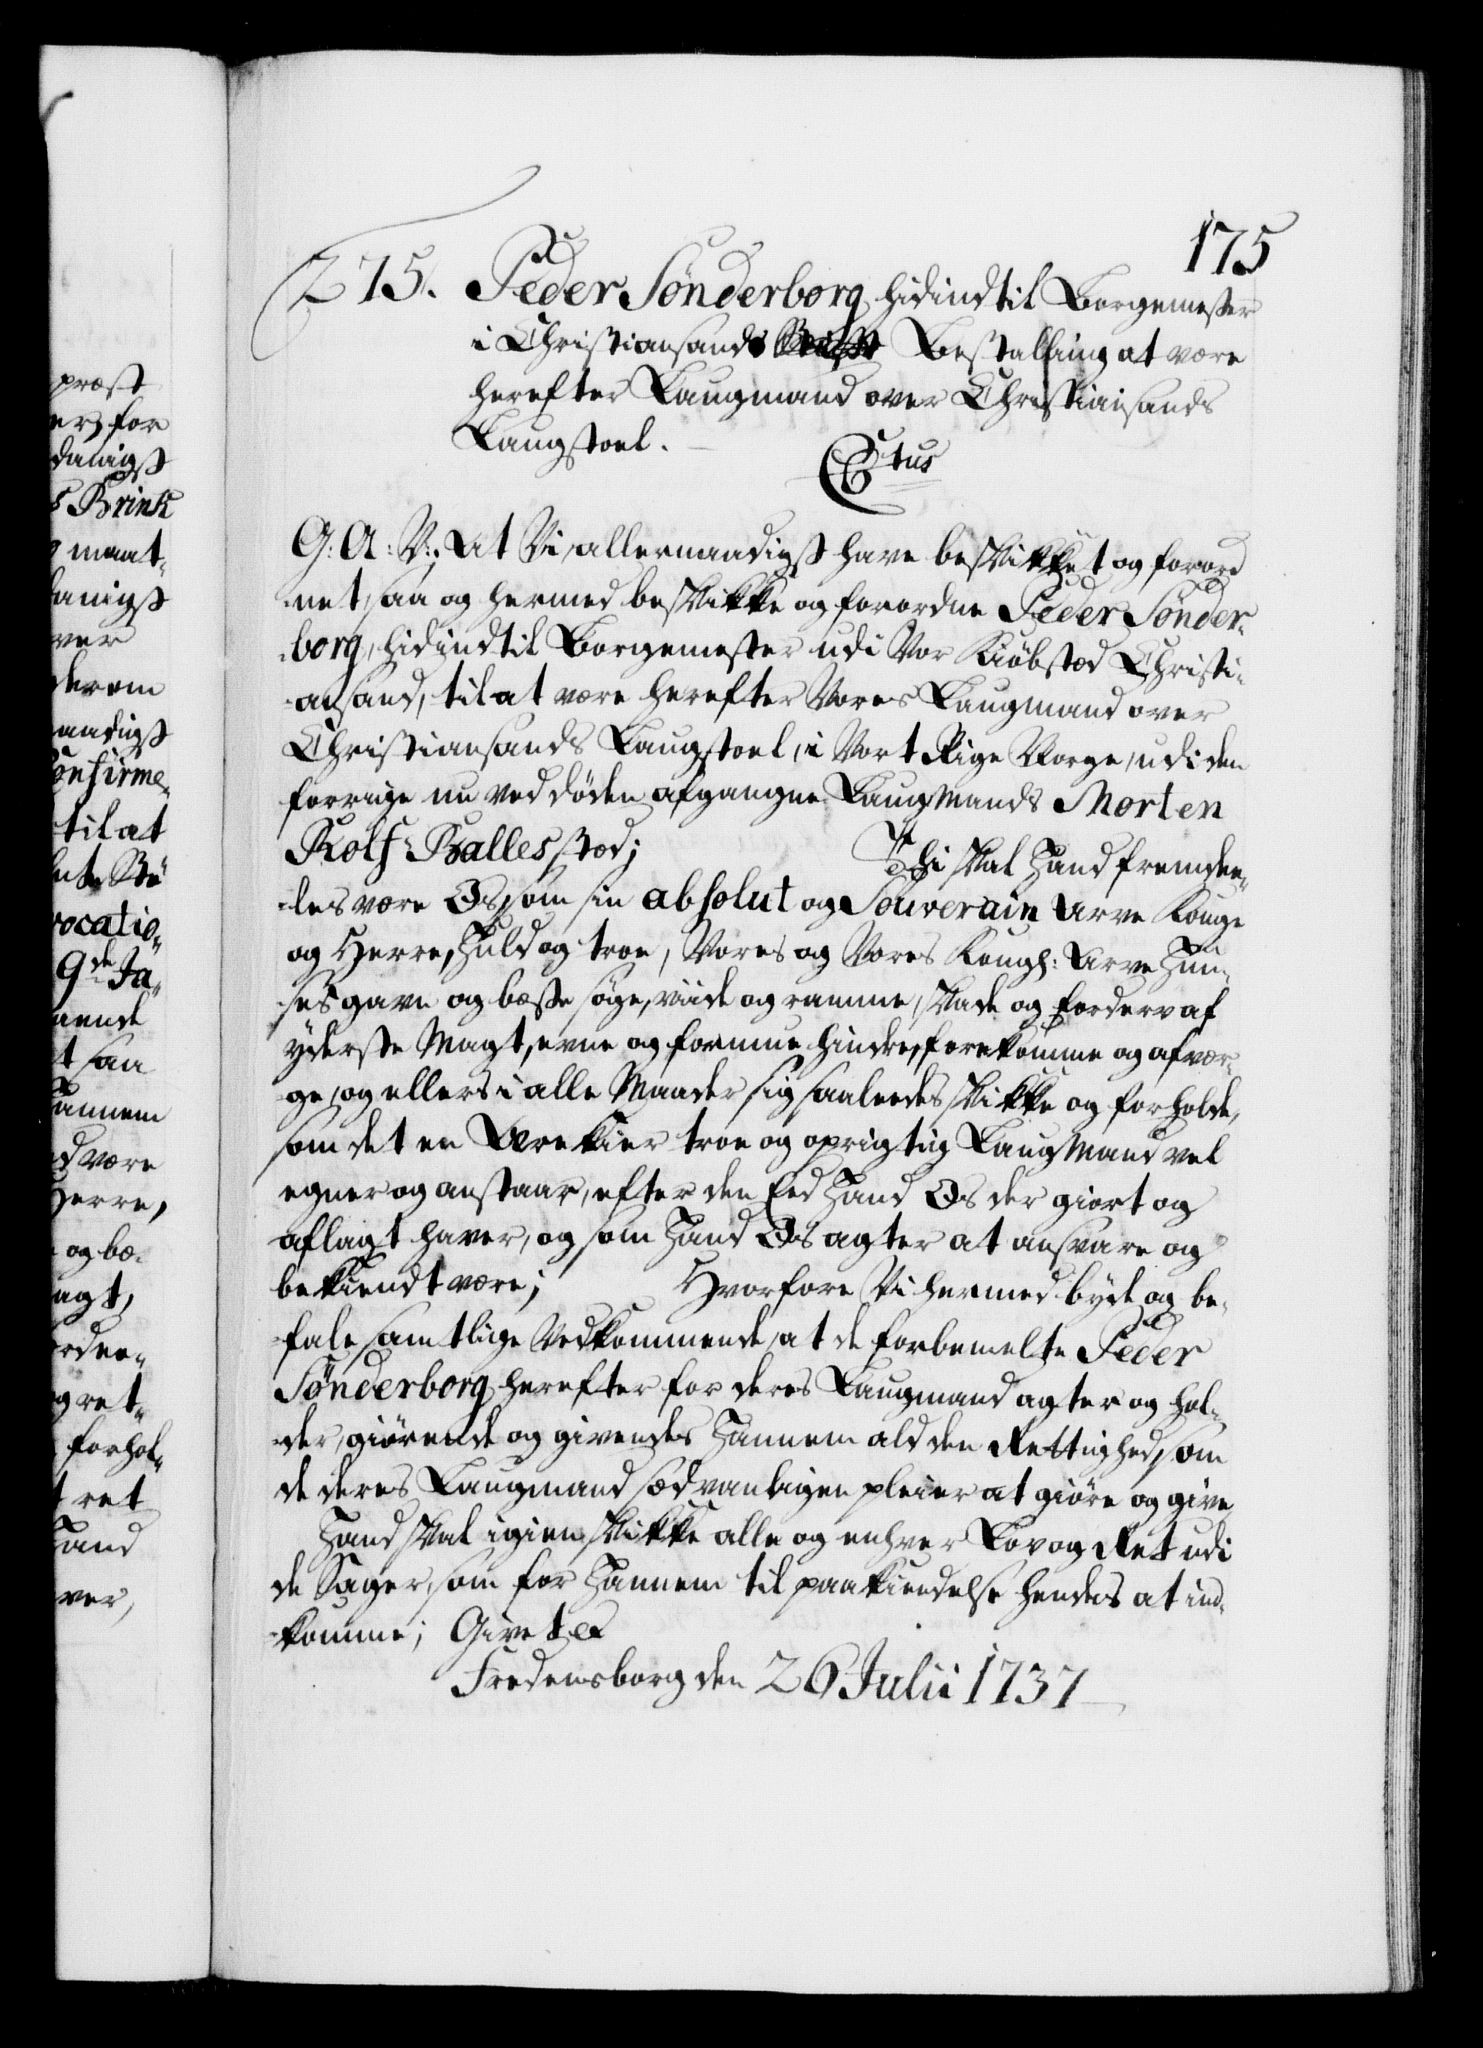 præst
er, for
danigst
s Brink
g maat-
danigst
ver
derom
naadigst
Confirme-
til at
vocatio-
9de Ja-
aende
t saa
Hannem
d være
Herre,
og bæ-
agt,
orden-
g ret-
forhol-
t ret
Hand
ver,
175
275. Peder Sønderborg hidindtil Borgemester
i Christiansands Bestalling at være
herefter Laugmand over Christiansands
Laugstoel.
C6tus
G: A: V:, At Vi allernaadigst have beskikket og forord
net, saa og hermed beskikke og forordne Peder Sønder-
borg, hidindtil Borgemester udi Vor Kiøbsted Christi-
ansand, til at være herefter Vores Laugmand over
Christiansands Laugstoel, i Vort Rige Norge, udi den
forrige nu ved døden afgangne Laugmands Morten
Rolf Balles sted;
Thi skal Hand fremdee-
les være Os, som sin absolut og Souverain Arve Konge
og Herre, Huld og troe, Vores og Vores Kongl: Arve Hu-
ses gavn og bæste søge, viide og ramme, skade og forderv af
yderste Magt, evne og formue hindre, forekomme og afvær-
ge, og ellers i alle Maader sig saaledes skikke og forholde,
som det en Ærekier troe og oprigtig Laugmand vel
egner og anstaar, efter den Eed Hand Os der giort og
aflagt haver, og som Hand Os agter at ansvare og
bekiendt være;
Hvorfore Vi hermed byde og be-
fale samtlige Vedkommende, at de forbemelte Peder
Sønderborg herefter for deres Laugmand agter og hol-
der, giørende og givendes Hannem ald den Rettighed, som
de deres Laugmand sædvanligen pleier at giøre og give
Hand skal igien skikke alle og enhver Lov og Ret udi
de Sager, som for Hannem til paakiendelse hendes at ind-
komme; Givet &
Fredensborg den 26 Julii 1737